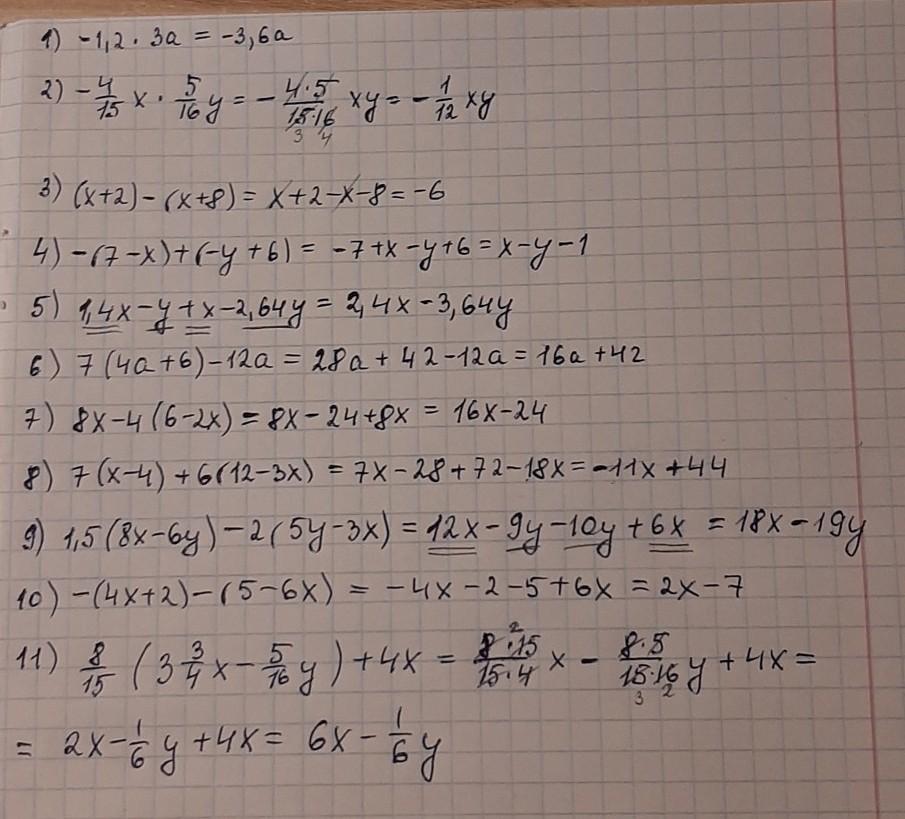 1) -1,2 · 3a = -3,6a
2) -4/15 x · 5/16 y = - 4·5/15·16 xy = - 1/12 xy
3 4
3) (x+2) - (x+8) = x+2-x-8 = -6
4) -(7-x)+(-y+6) = -7+x-y+6 = x-y-1
5) 1,4x-y+x-2,64y = 2,4x-3,64y
6) 7(4a+6)-12a = 28a+42-12a = 16a+42
7) 8x-4(6-2x) = 8x-24+8x = 16x-24
8) 7(x-4)+6(12-3x) = 7x-28+72-18x = -11x+44
9) 1,5(8x-6y)-2(5y-3x) = 12x-9y-10y+6x = 18x-19y
10) -(4x+2)-(5-6x) = -4x-2-5+6x = 2x-7
2
11) 8/15 (3 3/4 x - 5/16 y) + 4x = 8·15/15·4 x - 8·5/15·16 y + 4x =
3 2
= 2x - 1/6 y + 4x = 6x - 1/6 y